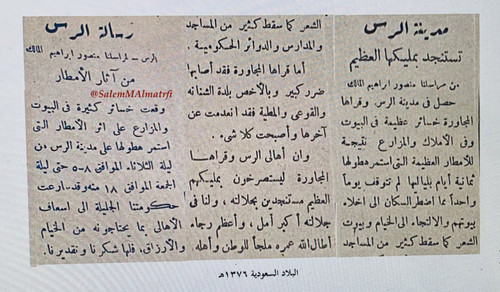 مدينة الرس
تستنجد بمليكها العظيم
من مراسلنا منصور ابراهيم المالك
حصل في مدينة الرس وقراها
المجاورة خسائر عظيمة في البيوت
وفي الأملاك والمزارع نتيجة
للأمطار العظيمة التي استمر هطولها
ثمانية أيام بلياليها لم تتوقف يوماً
واحداً بما اضطر السكان الى اخلاء
بيوتهم والالتجاء الى الخيام وبيوت
الشعر كما سقط كثير من المساجد
الشعر كما سقط كثير من المساجد
والمدارس والدوائر الحكومية .
أما قراها المجاورة فقد أصابها
ضرر كبير وبالأخص بلدة الشنانه
والقوعى والمطية فقد انعدمت عن
آخرها وأصبحت كلا شىء .
وان أهالى الرس وقراهـا
المجاورة ليستصرخون بمليكهم
العظيم مستنجدين بجلالته ، ولنا في
جلالته أكبر أمل ، وأعظم رجاء
أطال الله عمره ملجأ للوطن وأهله .
رسالة الرس
الرس - لمراسلنا منصور ابراهيم المالك
من آثار الأمطار
@SalemMAlmatrfi
وقعت خسائر كثيرة في البيوت
والمزارع على اثر الأمطار التى
استمر هطولها على مدينة الرس من
ليلة الثلاثاء الموافق ٨-٥ حتى ليلة
الجمعة الموافق ١٨ منه وقد سارعت
حكومتنا الجليلة الى اسعاف
الأهالى بما يحتاجونه من الخيام
والأرزاق ، فلها شكرنا وتقديرنا .
البلاد السعودية ١٣٧٦هـ